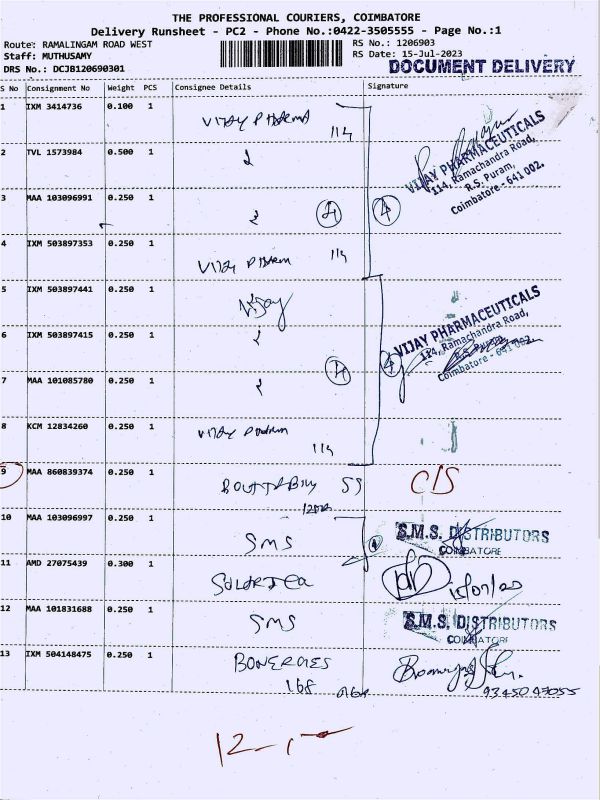 THE PROFESSIONAL COURIERS, COIMBATORE
Delivery Runsheet - PC2 - Phone No.:0422-3505555 - Page No.:1
Route: RAMALINGAM ROAD WEST
RS No.: 1206903
Staff: MUTHUSAMY
RS Date: 15-Jul-2023
DRS No.: DCJB120690301
DOCUMENT DELIVERY
S No Consignment No Weight PCS Consignee Details Signature
1 IXM 3414736 0.100 1
114
VIJAY PHARMACEUTICALS
114, Ramachandra Road,
R.S. Puram,
Coimbatore - 641 002.
2 TVL 1573984 0.500 1
3 MAA 103096991 0.250 1
4
4 IXM 503897353 0.250 1
114
5 IXM 503897441 0.250 1
Vijay
VIJAY PHARMACEUTICALS
114, Ramachandra Road,
R.S. Puram,
Coimbatore - 641 002.
6 IXM 503897415 0.250 1
7 MAA 101085780 0.250 1
4
8 KCM 12834260 0.250 1
114
9 MAA 860839374 0.250 1
C/S
10 MAA 103096997 0.250 1
SMS
S.M.S. DISTRIBUTORS
COIMBATORE
11 AMD 27075439 0.300 1
12 MAA 101831688 0.250 1
SMS
S.M.S. DISTRIBUTORS
COIMBATORE
13 IXM 504148475 0.250 1
168